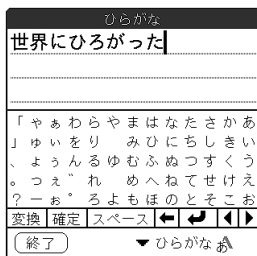 ひらがな
世界にひろがった
「 ゃ ぁ わ ら や ま は な た さ か あ
」 ゅ ぃ を り み ひ に ち し き い
、 ょ ぅ ん る ゆ む ふ ぬ つ す く う
。 っ ぇ ゛ れ め へ ね て せ け え
? ー ぉ ゜ ろ よ も ほ の と そ こ お
変換 確定 スペース
終了 ひらがな あA